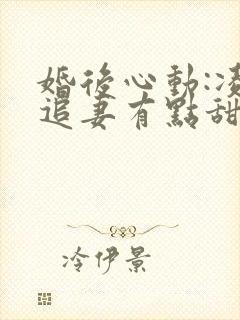 婚後心動:凌
追妻有點甜
冷伊景